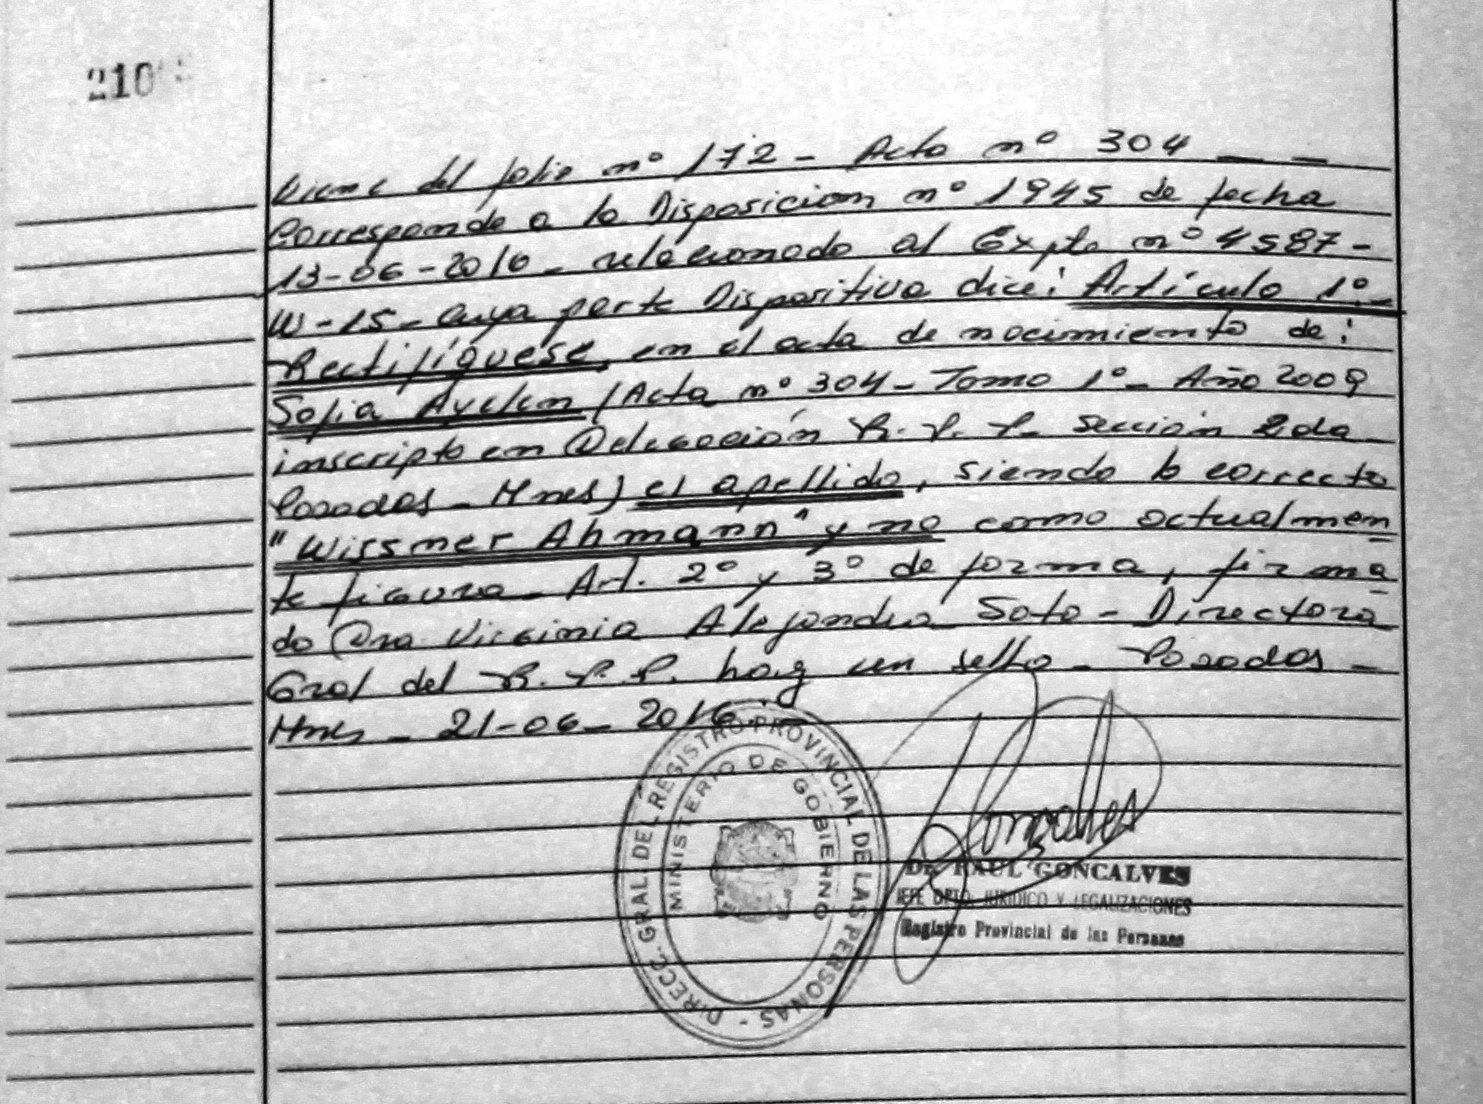 210
Viene del folio nº 172 - Acta nº 304 — —
Corresponde a la Disposicion nº 1945 de fecha
13-06-2016 - relacionado al Expte nº 4587-
W-15 - cuya parte Dispositiva dice: Artículo 1º-
Rectifíquese, en el acta de nacimiento de:
Sofia Ayelen (Acta nº 304 - Tomo 1º - Año 2009
inscripto en Delegación R.P.P. Sección 2da
Posadas - Mnes) el apellido, siendo lo correcto
"Wissmer Ahmann" y no como actualmen
te figura. Art. 2º y 3º de forma, firma
do Dra Virginia Alejandra Soto - Directora
Gral del R.P.P. hay un sello - Posadas -
Mnes - 21-06-2016.
DIRECC. GRAL. DEL REGISTRO PROVINCIAL DE LAS PERSONAS -
MINISTERIO DE GOBIERNO
Goncalves
Dr. RAUL GONCALVES
JEFE DPTO. JURIDICO Y LEGALIZACIONES
Registro Provincial de las Personas